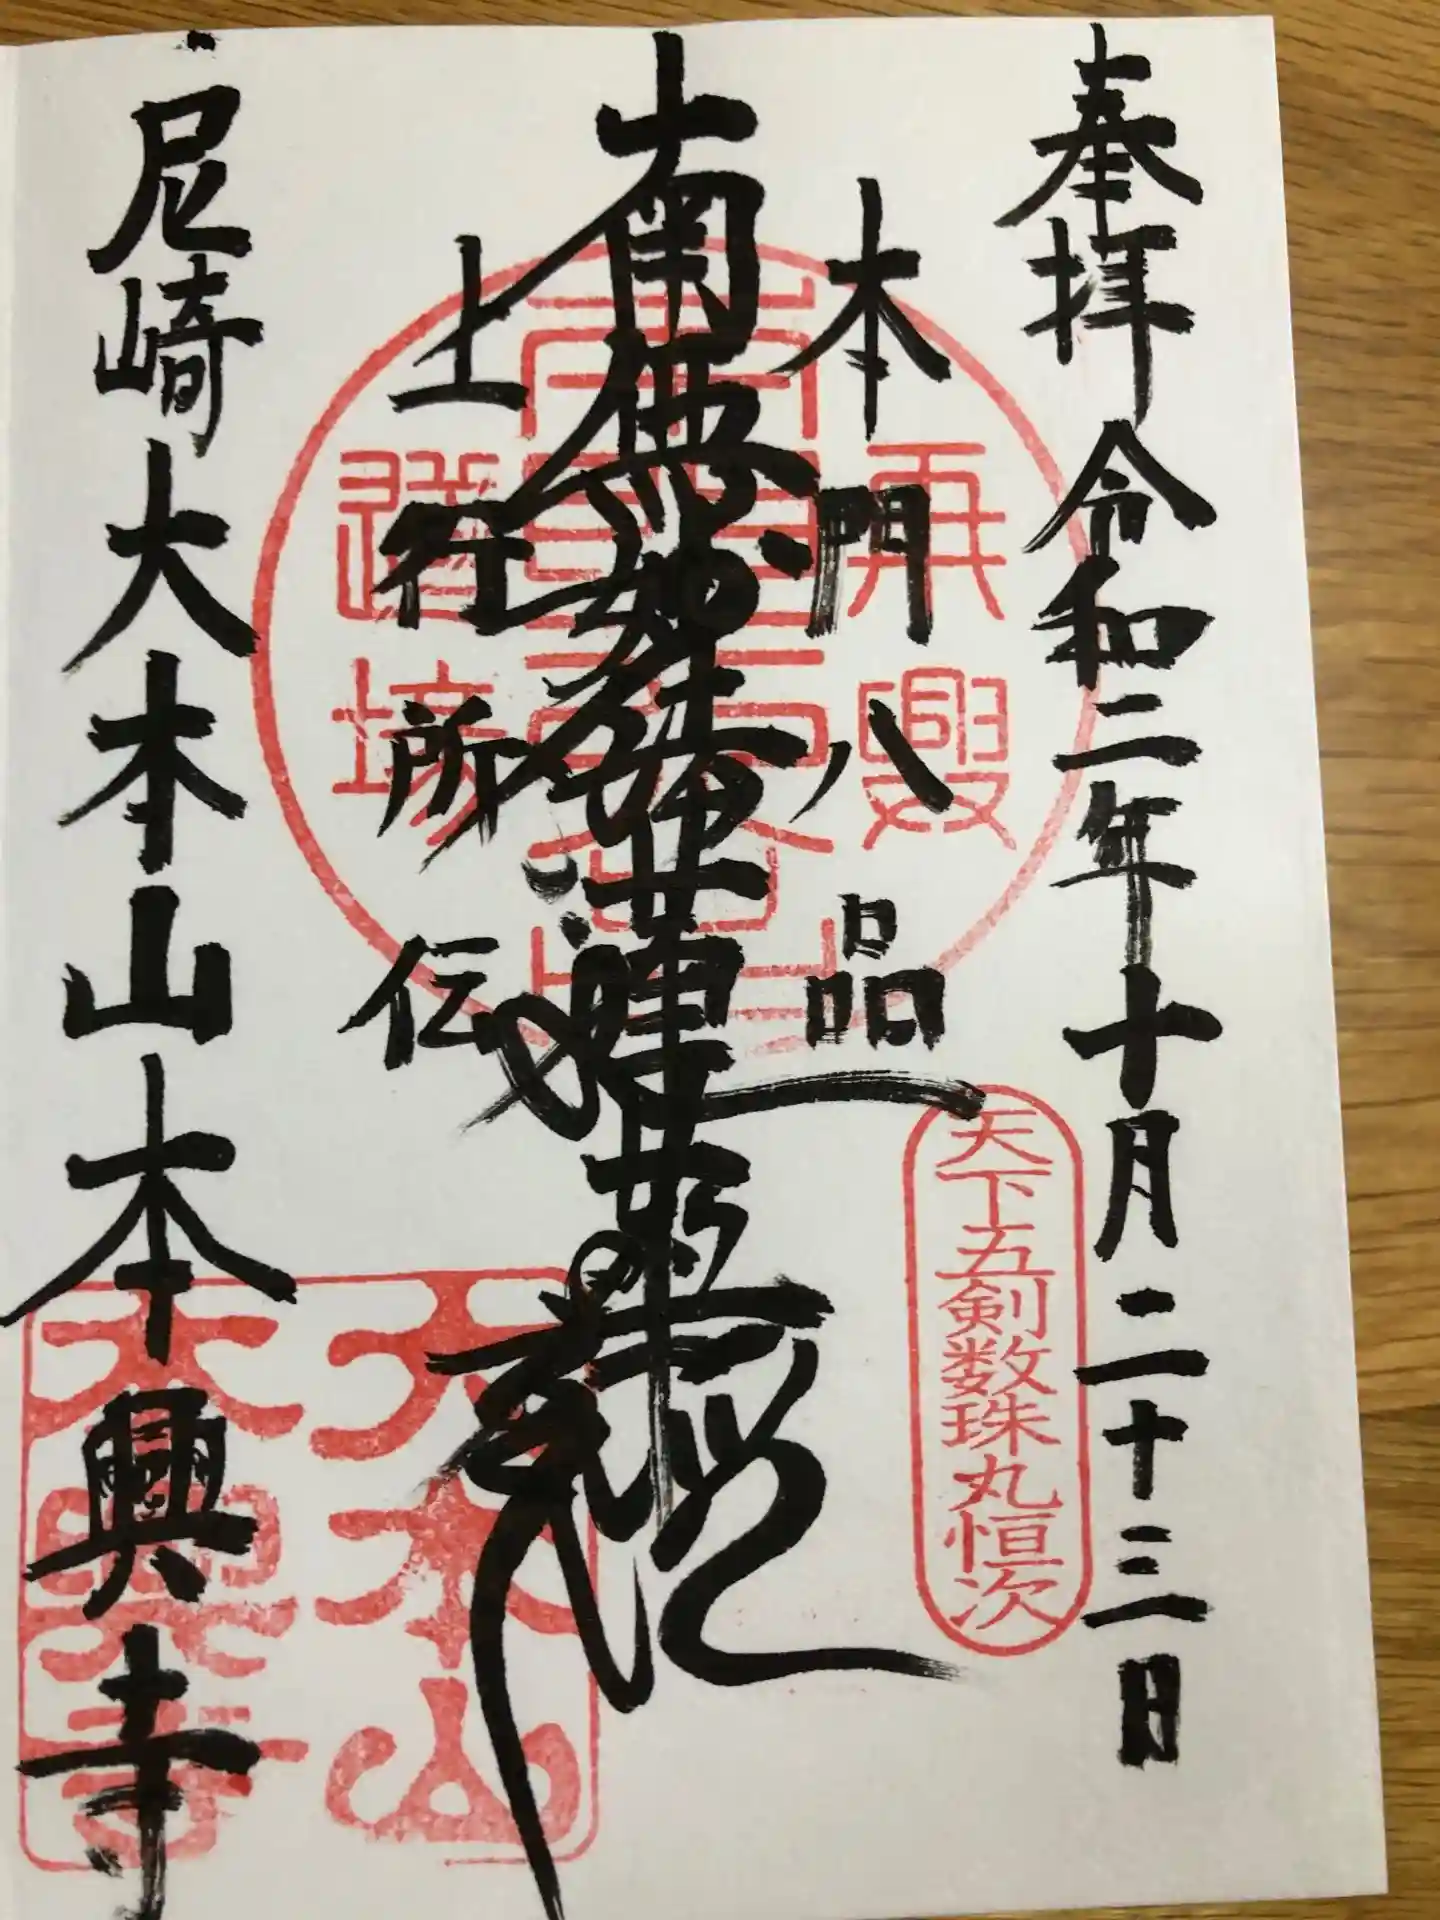 奉拝 令和二年十月二十三日
天下五剣数珠丸恒次
本門八品
南無妙法蓮華経
上行所伝
尼崎大本山本興寺
大本山
本興寺
道場